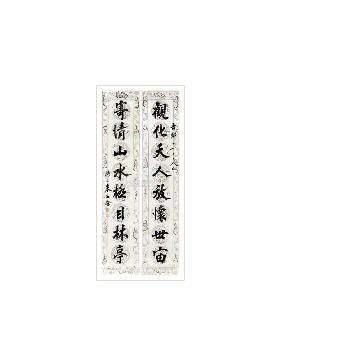 觀化天人放懷世宙
寄情山水極目林亭